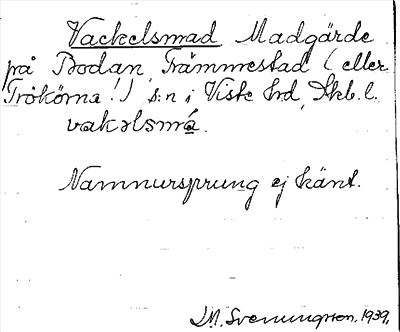 Vackelsmad Madgärde
på Bodan, Främmestad (eller
Trökörna!) s:n i Viste hrd, Skb. l.
vakəlsmá.
Namnursprung ej känt.
J.M. Svenungsson. 1939.